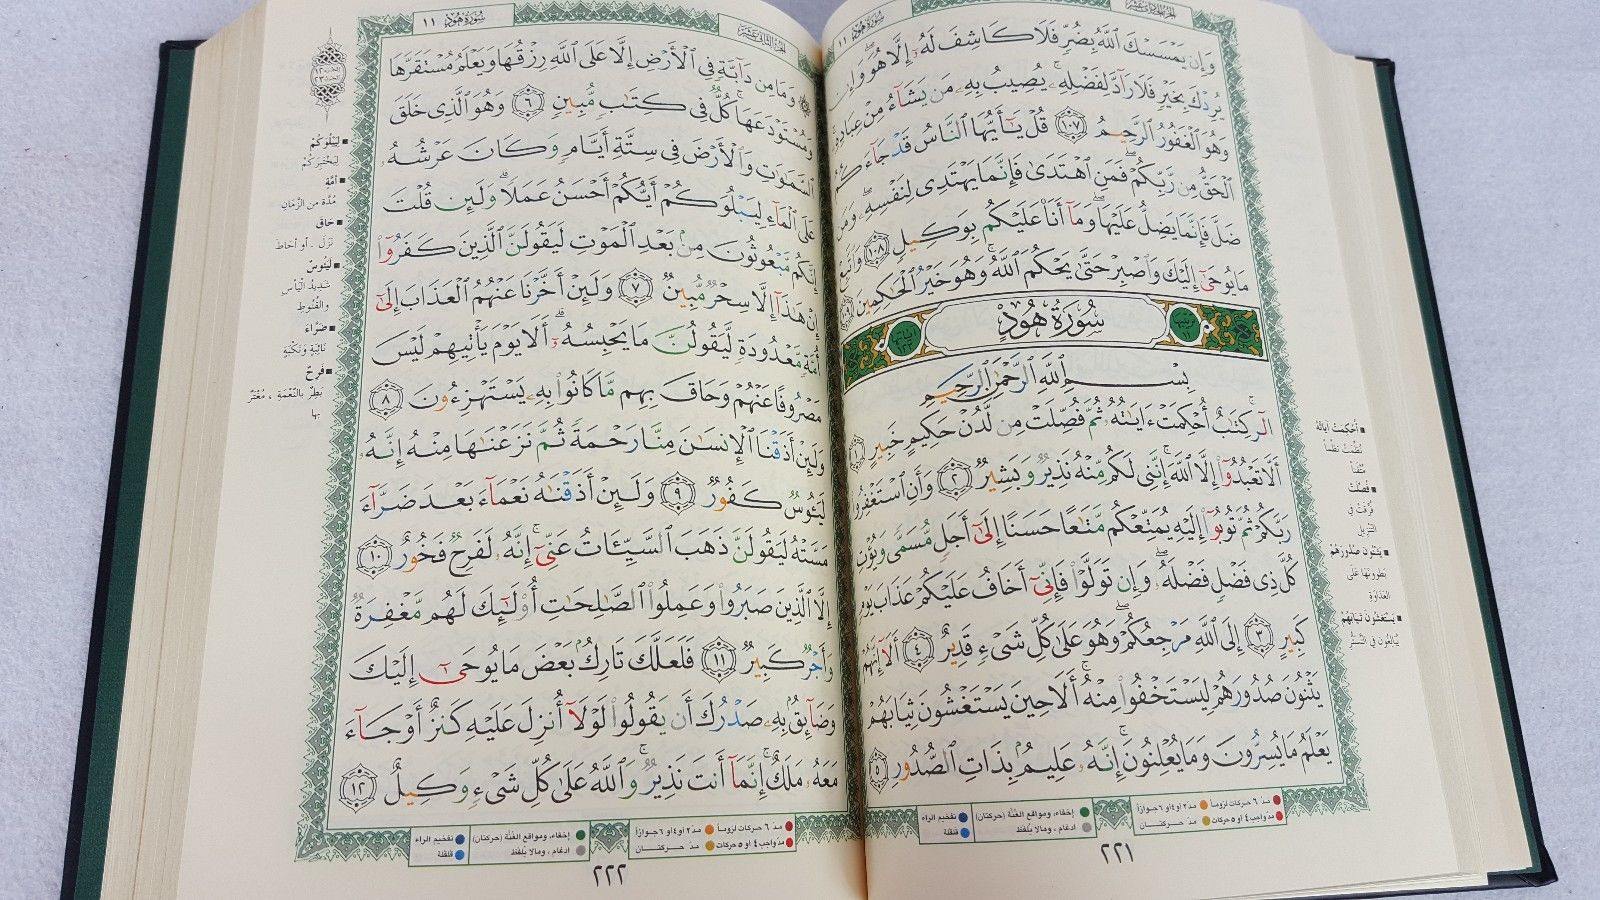 سورة هود ١١
وَإِن يَمْسَسْكَ ٱللَّهُ بِضُرٍّ فَلَا كَاشِفَ لَهُۥٓ إِلَّا هُوَ وَإِن
يُرِدْكَ بِخَيْرٍ فَلَا رَآدَّ لِفَضْلِهِۦ يُصِيبُ بِهِۦ مَن يَشَآءُ مِنْ عِبَادِهِۦ
وَهُوَ ٱلْغَفُورُ ٱلرَّحِيمُ ١٠٧ قُلْ يَٰٓأَيُّهَا ٱلنَّاسُ قَدْ جَآءَكُمُ
ٱلْحَقُّ مِن رَّبِّكُمْ فَمَنِ ٱهْتَدَىٰ فَإِنَّمَا يَهْتَدِى لِنَفْسِهِۦ وَمَن
ضَلَّ فَإِنَّمَا يَضِلُّ عَلَيْهَا وَمَآ أَنَا۠ عَلَيْكُم بِوَكِيلٍ ١٠٨ وَٱتَّبِعْ
مَا يُوحَىٰٓ إِلَيْكَ وَٱصْبِرْ حَتَّىٰ يَحْكُمَ ٱللَّهُ وَهُوَ خَيْرُ ٱلْحَٰكِمِينَ ١٠٩
سُورَةُ هُودٍ
بِسْمِ ٱللَّهِ ٱلرَّحْمَٰنِ ٱلرَّحِيمِ
الٓر كِتَٰبٌ أُحْكِمَتْ ءَايَٰتُهُۥ ثُمَّ فُصِّلَتْ مِن لَّدُنْ حَكِيمٍ خَبِيرٍ ١
أَلَّا تَعْبُدُوٓا۟ إِلَّا ٱللَّهَ إِنَّنِى لَكُم مِّنْهُ نَذِيرٌ وَبَشِيرٌ ٢ وَأَنِ ٱسْتَغْفِرُوا۟
رَبَّكُمْ ثُمَّ تُوبُوٓا۟ إِلَيْهِ يُمَتِّعْكُم مَّتَٰعًا حَسَنًا إِلَىٰٓ أَجَلٍ مُّسَمًّى وَيُؤْتِ
كُلَّ ذِى فَضْلٍ فَضْلَهُۥ وَإِن تَوَلَّوْا۟ فَإِنِّىٓ أَخَافُ عَلَيْكُمْ عَذَابَ يَوْمٍ
كَبِيرٍ ٣ إِلَى ٱللَّهِ مَرْجِعُكُمْ وَهُوَ عَلَىٰ كُلِّ شَىْءٍ قَدِيرٌ ٤ أَلَآ إِنَّهُمْ
يَثْنُونَ صُدُورَهُمْ لِيَسْتَخْفُوا۟ مِنْهُ أَلَا حِينَ يَسْتَغْشُونَ ثِيَابَهُمْ
يَعْلَمُ مَا يُسِرُّونَ وَمَا يُعْلِنُونَ إِنَّهُۥ عَلِيمٌۢ بِذَاتِ ٱلصُّدُورِ ٥
■ أُحْكِمَتْ آيَاتُهُ
نُظِّمَتْ نَظْماً
مُتْقَناً
■ فُصِّلَتْ
فُرِّقَتْ فِي
التَّنْزِيلِ
■ يَثْنُونَ صُدُورَهُمْ
يَطْوُونَهَا عَلَى
العَدَاوَةِ
■ يَسْتَغْشُونَ ثِيَابَهُمْ
يُبَالِغُونَ فِي التَّسَتُّرِ
مدّ ٦ حركات لزوماً مدّ ٢ أو ٤ أو ٦ جوازاً
مدّ واجب ٤ أو ٥ حركات مدّ حركتان
إخفاء، ومواقع الغُنَّة (حركتان)
ادغام، ومالا يُلفَظ
تفخيم الراء
قلقلة
٢٢١
سورة هود ١١
الجزء الثاني عشر
وَمَا مِن دَآبَّةٍ فِى ٱلْأَرْضِ إِلَّا عَلَى ٱللَّهِ رِزْقُهَا وَيَعْلَمُ مُسْتَقَرَّهَا
وَمُسْتَوْدَعَهَا كُلٌّ فِى كِتَٰبٍ مُّبِينٍ ٦ وَهُوَ ٱلَّذِى خَلَقَ
ٱلسَّمَٰوَٰتِ وَٱلْأَرْضَ فِى سِتَّةِ أَيَّامٍ وَكَانَ عَرْشُهُۥ
عَلَى ٱلْمَآءِ لِيَبْلُوَكُمْ أَيُّكُمْ أَحْسَنُ عَمَلًا وَلَئِن قُلْتَ
إِنَّكُم مَّبْعُوثُونَ مِنۢ بَعْدِ ٱلْمَوْتِ لَيَقُولَنَّ ٱلَّذِينَ كَفَرُوٓا۟
إِنْ هَٰذَآ إِلَّا سِحْرٌ مُّبِينٌ ٧ وَلَئِنْ أَخَّرْنَا عَنْهُمُ ٱلْعَذَابَ إِلَىٰٓ
أُمَّةٍ مَّعْدُودَةٍ لَّيَقُولُنَّ مَا يَحْبِسُهُۥٓ أَلَا يَوْمَ يَأْتِيهِمْ لَيْسَ
مَصْرُوفًا عَنْهُمْ وَحَاقَ بِهِم مَّا كَانُوا۟ بِهِۦ يَسْتَهْزِءُونَ ٨
وَلَئِنْ أَذَقْنَا ٱلْإِنسَٰنَ مِنَّا رَحْمَةً ثُمَّ نَزَعْنَٰهَا مِنْهُ إِنَّهُۥ
لَيَـُٔوسٌ كَفُورٌ ٩ وَلَئِنْ أَذَقْنَٰهُ نَعْمَآءَ بَعْدَ ضَرَّآءَ
مَسَّتْهُ لَيَقُولَنَّ ذَهَبَ ٱلسَّيِّـَٔاتُ عَنِّىٓ إِنَّهُۥ لَفَرِحٌ فَخُورٌ ١٠
إِلَّا ٱلَّذِينَ صَبَرُوا۟ وَعَمِلُوا۟ ٱلصَّٰلِحَٰتِ أُو۟لَٰٓئِكَ لَهُم مَّغْفِرَةٌ
وَأَجْرٌ كَبِيرٌ ١١ فَلَعَلَّكَ تَارِكٌۢ بَعْضَ مَا يُوحَىٰٓ إِلَيْكَ
وَضَآئِقٌۢ بِهِۦ صَدْرُكَ أَن يَقُولُوا۟ لَوْلَآ أُنزِلَ عَلَيْهِ كَنزٌ أَوْ جَآءَ
مَعَهُۥ مَلَكٌ إِنَّمَآ أَنتَ نَذِيرٌ وَٱللَّهُ عَلَىٰ كُلِّ شَىْءٍ وَكِيلٌ ١٢
■ لِيَبْلُوَكُمْ
لِيَخْتَبِرَكُمْ
■ أُمَّةٍ
مُدَّة من الزَّمَانِ
■ حَاقَ
نَزَلَ . أو أحَاطَ
■ لَيَئُوسٌ
شَدِيدُ اليَأْسِ
والقُنُوطِ
■ ضَرَّاءَ
نَائِبَةٍ وَنَكْبَةٍ
■ فَرِحٌ
بَطِرٌ بالنِّعْمَةِ ، مُغْتَرٌّ
بها
مدّ ٦ حركات لزوماً مدّ ٢ أو ٤ أو ٦ جوازاً
مدّ واجب ٤ أو ٥ حركات مدّ حركتان
إخفاء، ومواقع الغُنَّة (حركتان)
ادغام، ومالا يُلفَظ
تفخيم الراء
قلقلة
٢٢٢